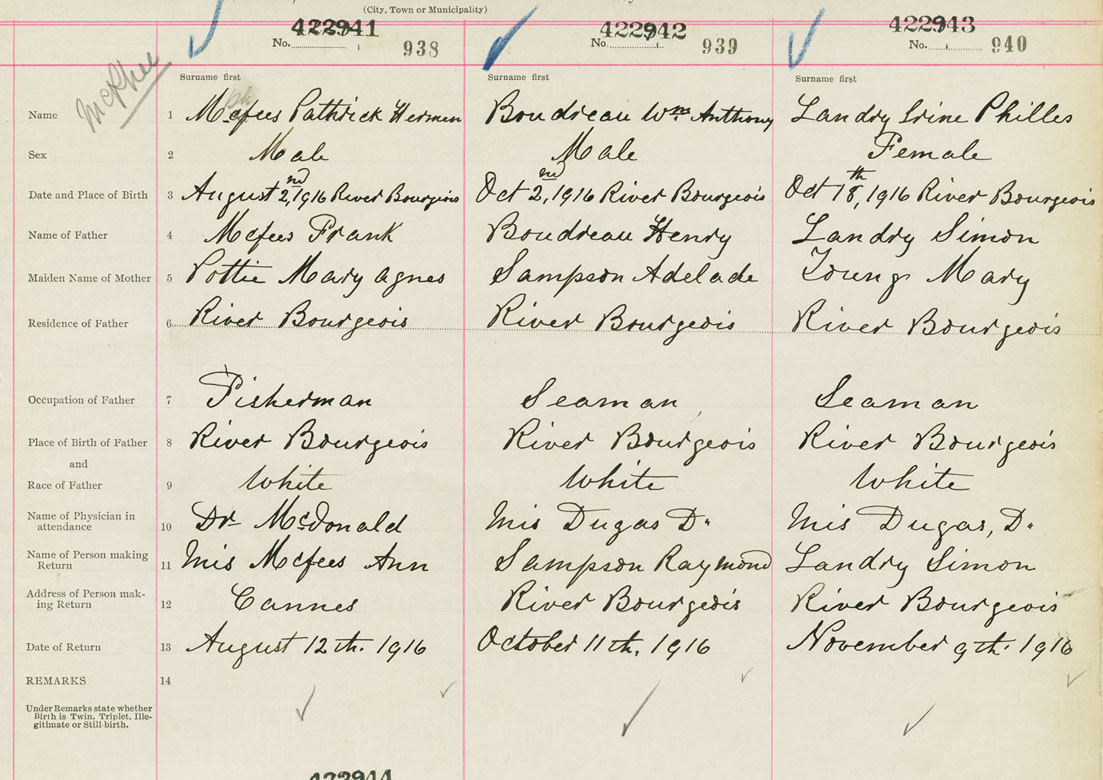 (City, Town or Municipality)
422941 422942 422943
No. 938 No. 939 No. 940
McPhee
Surname first Surname first Surname first
Name 1 Mcfees Pathrick Hermen Boudreau Wm Anthony Landry Irine Philles
Sex 2 Male Male Female
Date and Place of Birth 3 August 2nd, 1916 River Bourgeois Oct 2nd, 1916 River Bourgeois Oct 18th, 1916 River Bourgeois
Name of Father 4 Mcfees Frank Boudreau Henry Landry Simon
Maiden Name of Mother 5 Pottie Mary Agnes Sampson Adelade Young Mary
Residence of Father 6 River Bourgeois River Bourgeois River Bourgeois
Occupation of Father 7 Fisherman Seaman Seaman
Place of Birth of Father 8 River Bourgeois River Bourgeois River Bourgeois
and
Race of Father 9 White White White
Name of Physician in
attendance 10 Dr McDonald Mis Dugas D. Mis Dugas, D.
Name of Person making
Return 11 Mis Mcfees Ann Sampson Raymond Landry Simon
Address of Person mak-
ing Return 12 Cannes River Bourgeois River Bourgeois
Date of Return 13 August 12th. 1916 October 11th, 1916 November 9th. 1916
REMARKS 14
Under Remarks state whether
Birth is Twin, Triplet, Ille-
gitimate or Still-birth.
422944